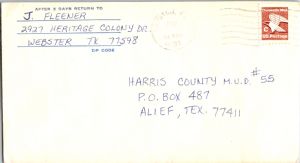 AFTER 5 DAYS RETURN TO
J. FLEENER
2927 HERITAGE COLONY DR.
WEBSTER, TX 77598
ZIP CODE
Domestic Mail
C
US Postage
HARRIS COUNTY M.U.D. #55
P.O. BOX 487
ALIEF, TEX. 77411